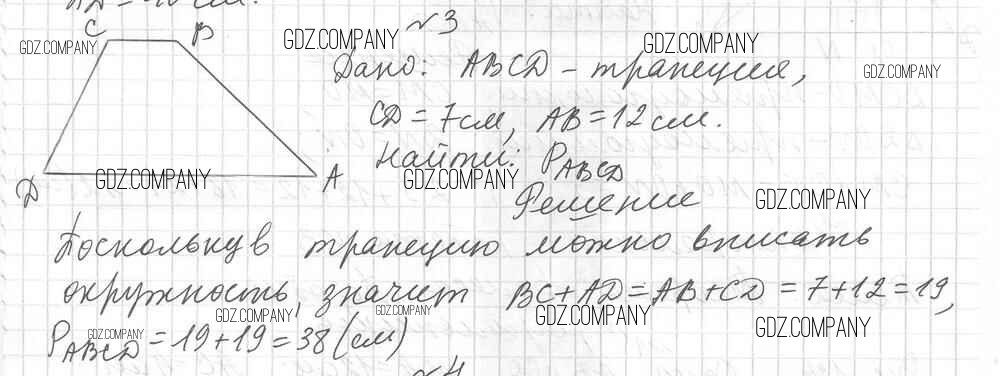 AD = 10 см.
№3
C B
Дано: ABCD - трапеция,
CD = 7 см, AB = 12 см.
Найти: P ABCD
D A
Решение
Поскольку в трапецию можно вписать
окружность, значит BC + AD = AB + CD = 7 + 12 = 19,
P ABCD = 19 + 19 = 38 (см)
№4
GDZ.COMPANY
GDZ.COMPANY
GDZ.COMPANY
GDZ.COMPANY
GDZ.COMPANY
GDZ.COMPANY
GDZ.COMPANY
GDZ.COMPANY
GDZ.COMPANY
GDZ.COMPANY
GDZ.COMPANY
GDZ.COMPANY